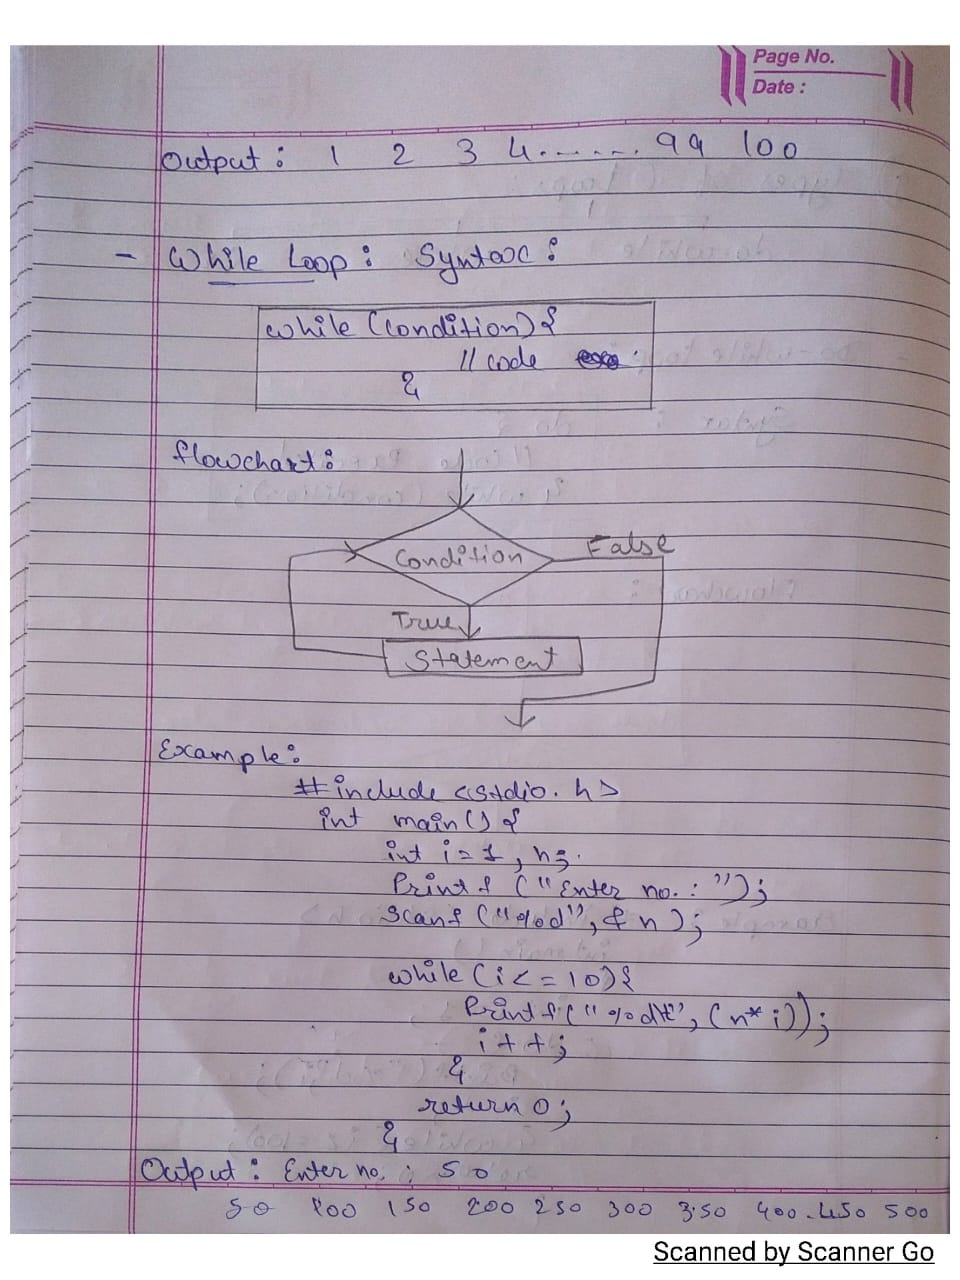 Page No.
Date :
Output : 1 2 3 4 ....... 99 100
- While Loop : Syntax :
while (condition) {
// code
}
flowchart :
Condition
False
True
Statement
Example :
#include <stdio.h>
int main() {
int i = 1, n;
Printf ("Enter no. : ");
Scanf ("%d", &n);
while (i <= 10) {
Printf ("%d\t", (n*i));
i++;
}
return 0;
}
Output : Enter no. : 50
50 100 150 200 250 300 350 400 450 500
Scanned by Scanner Go